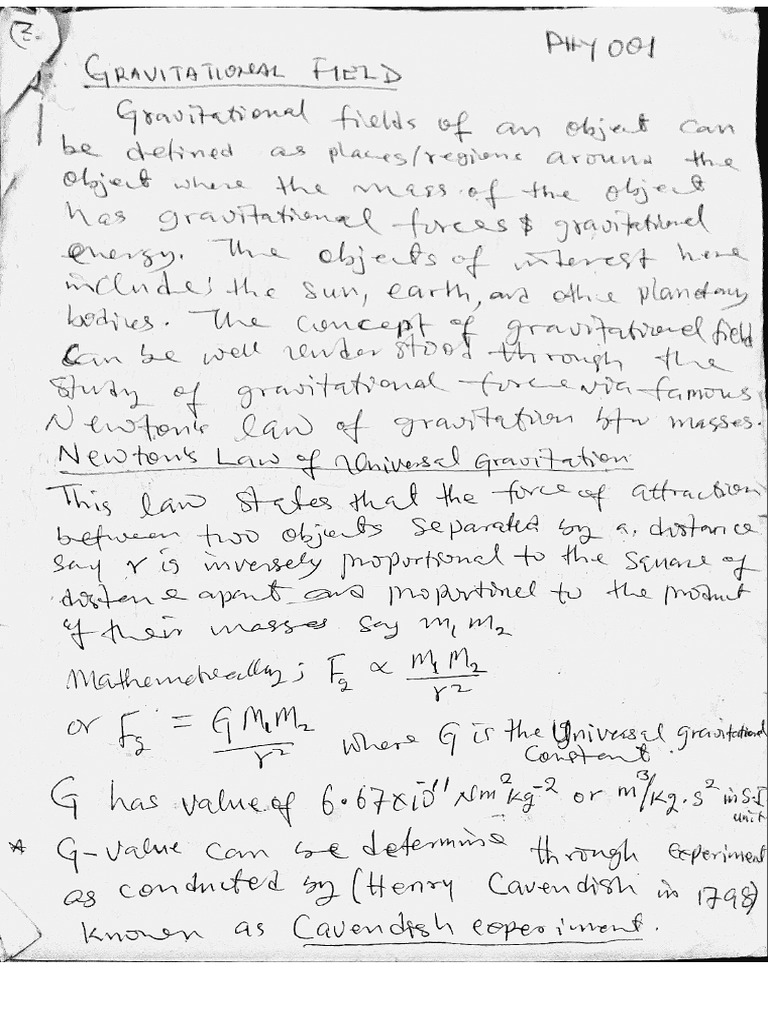 2.
PHY 001
GRAVITATIONAL FIELD
Gravitational fields of an object can
be defined as places/regions around the
object where the mass of the object
has gravitational forces & gravitational
energy. The objects of interest here
includes the sun, earth, and other planetary
bodies. The concept of gravitational field
can be well understood through the
study of gravitational force via famous
Newton's law of gravitation btw masses.
Newton's Law of Universal Gravitation
This law states that the force of attraction
between two objects separated by a distance
say r is inversely proportional to the square of
distance apart and proportional to the product
of their masses say m₁ m₂
Mathematically; Fg ∝ m₁ m₂ / r²
or Fg = G m₁ m₂ / r² where G is the Universal gravitational
constant.
G has value of 6.67×10⁻¹¹ Nm²kg⁻² or m³/kg.s² in S.I
unit
* G-value can be determine through experiment
as conducted by (Henry Cavendish in 1798)
known as Cavendish experiment.